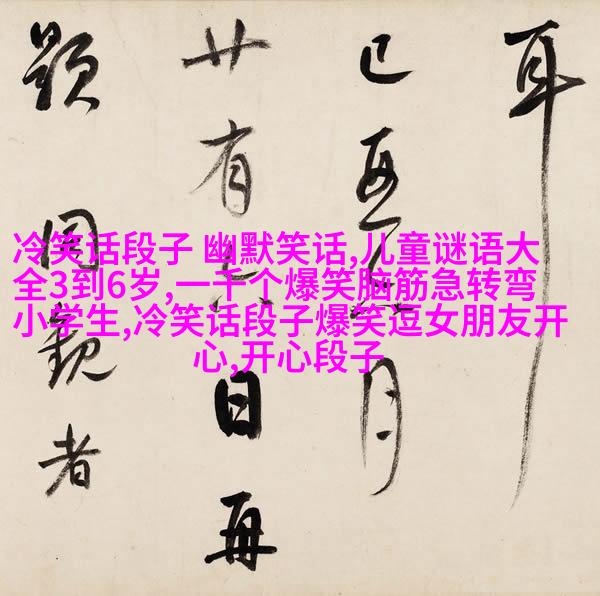 冷笑话段子 幽默笑话,儿童谜语大
全3到6岁,一千个爆笑脑筋急转弯
小学生,冷笑话段子爆笑逗女朋友开
心,开心段子
耳
月
廿有六日再
題同觀者